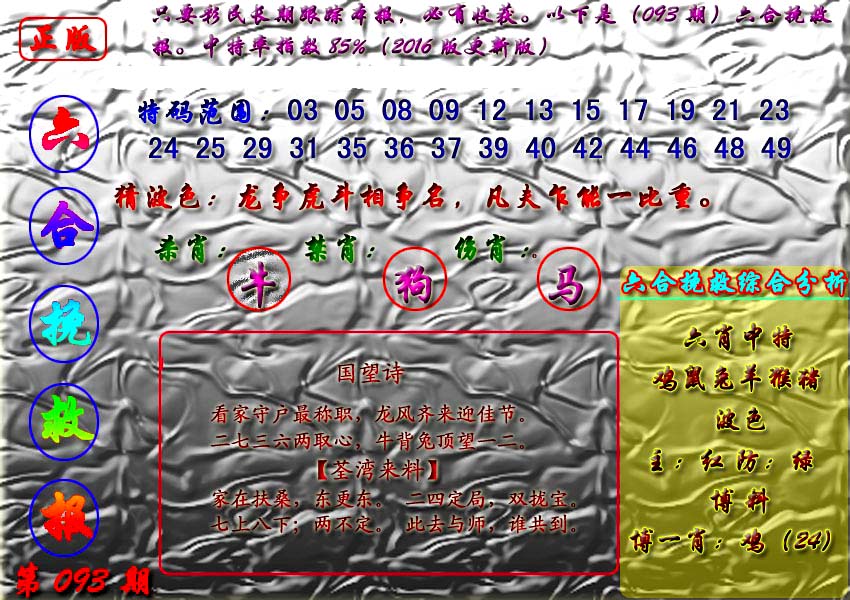 正版
只要彩民长期跟踪本报，必有收获。以下是（093期）六合挽救
报。中特率指数85%（2016版更新版）
六
合
挽
救
报
第093期
特码范围：03 05 08 09 12 13 15 17 19 21 23
24 25 29 31 35 36 37 39 40 42 44 46 48 49
猜波色：龙争虎斗相争名，凡夫乍能一比重。
杀肖：牛 禁肖：狗 伤肖：马。
国望诗
看家守户最称职，龙风齐来迎佳节。
二七三六两取心，牛背兔顶望一二。
【荃湾来料】
家在扶桑，东更东。 二四定局，双拢宝。
七上八下；两不定。 此去与师，谁共到。
六合挽救综合分析
六肖中特
鸡鼠兔羊猴猪
波色
主：红防：绿
博料
博一肖：鸡（24）